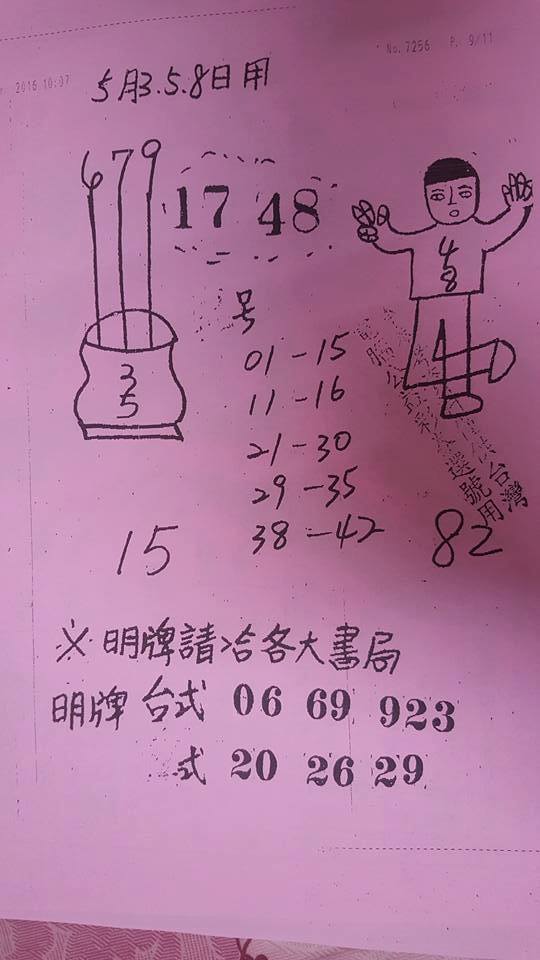 2016 10:07
No. 7256 P. 9/11
5月3.5.8日用
679
17 48
3
5
4
8
1
号
01-15
11-16
21-30
29-35
38-42
選號用
台灣
15
82
※明牌請洽各大書局
明牌 台式 06 69 923
式 20 26 29